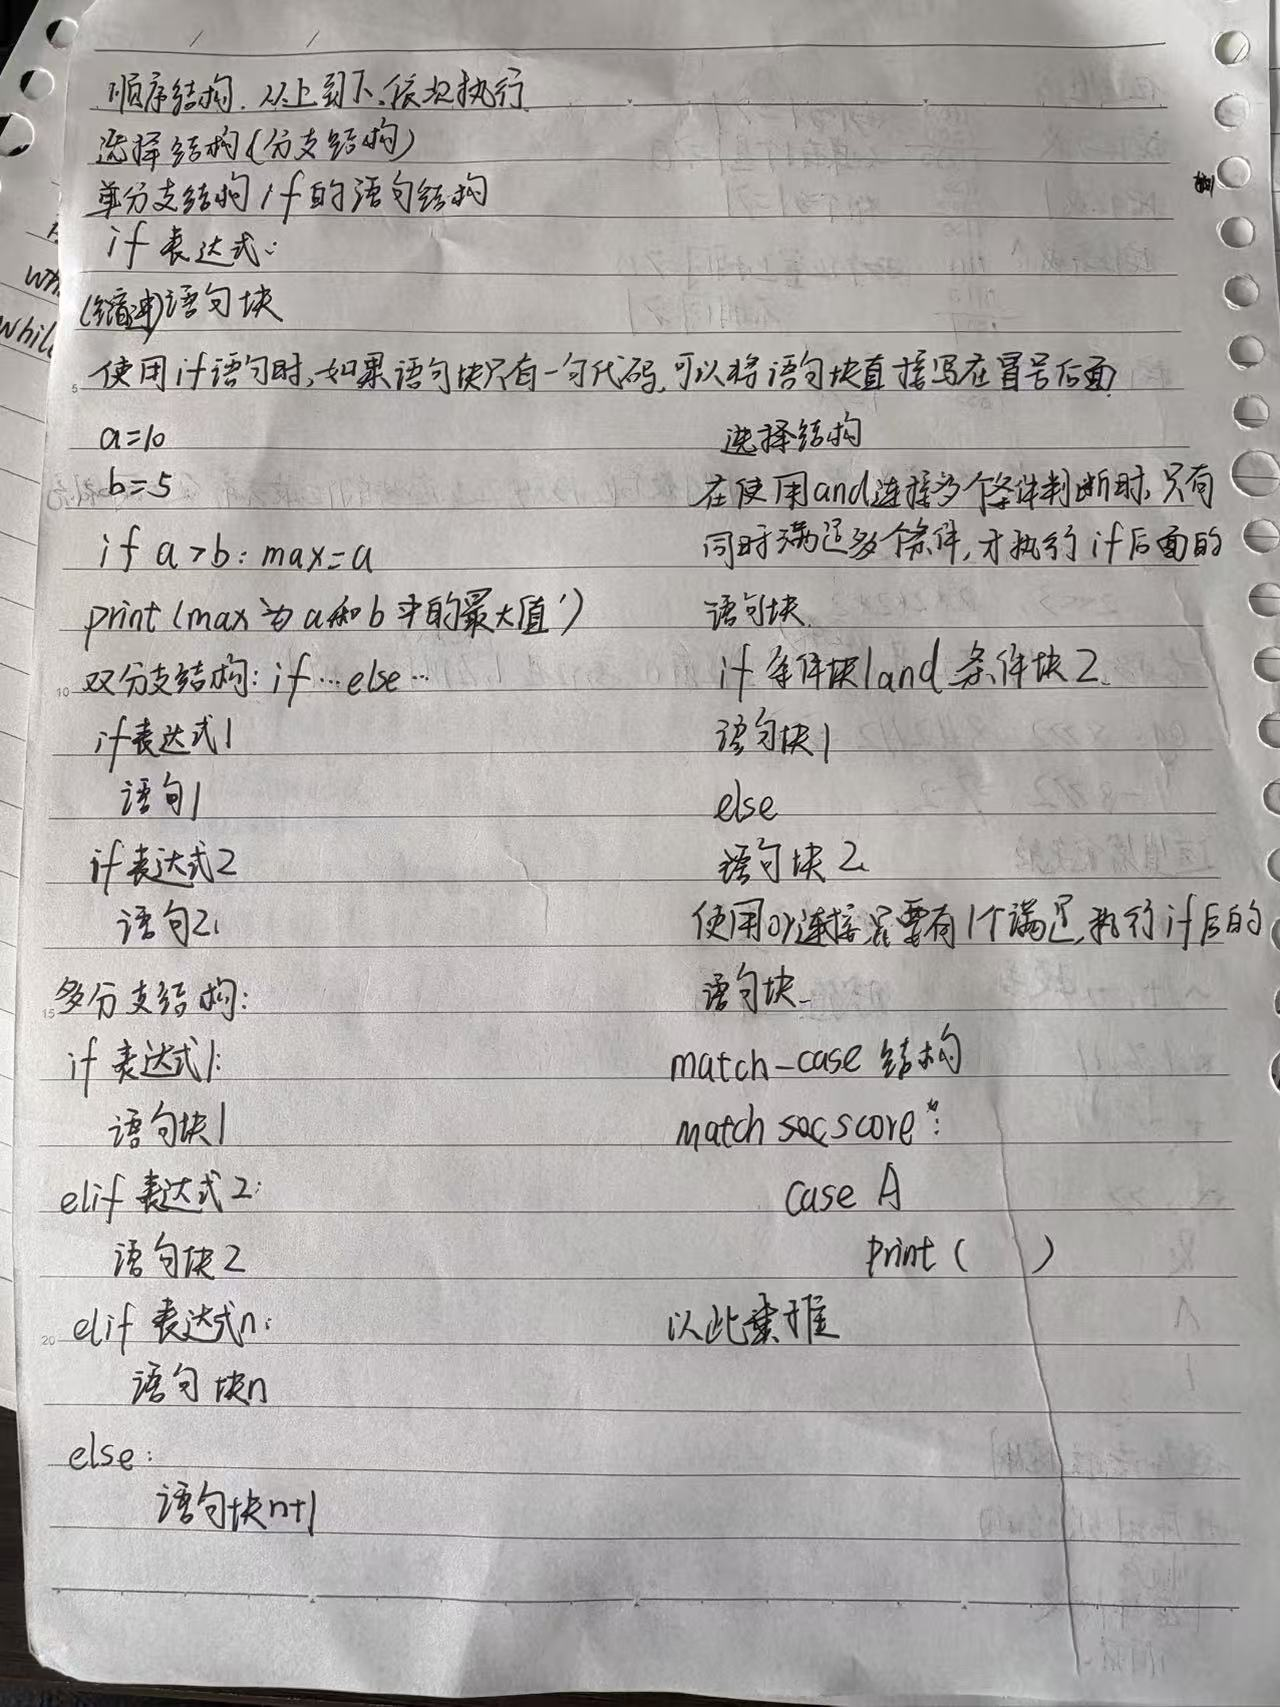 顺序结构.从上到下.依次执行.
选择结构(分支结构)
单分支结构if的语句结构
if 表达式:
(缩进)语句块
使用if语句时,如果语句块只有一句代码,可以将语句块直接写在冒号后面
a=10
b=5
if a>b: max=a
print(max为a和b中的最大值')
双分支结构:if…else…
if表达式1
语句1
if表达式2
语句2
多分支结构:
if 表达式1:
语句块1
elif 表达式2:
语句块2
elif 表达式n:
语句块n
else:
语句块n+1
选择结构
在使用and连接多个条件判断时,只有
同时满足多个条件,才执行if后面的
语句块.
if 条件块1and 条件块2.
语句块1
else
语句块2
使用or连接,只要有1个满足,执行if后的
语句块
match-case 结构
match score:
case A
print( )
以此类推